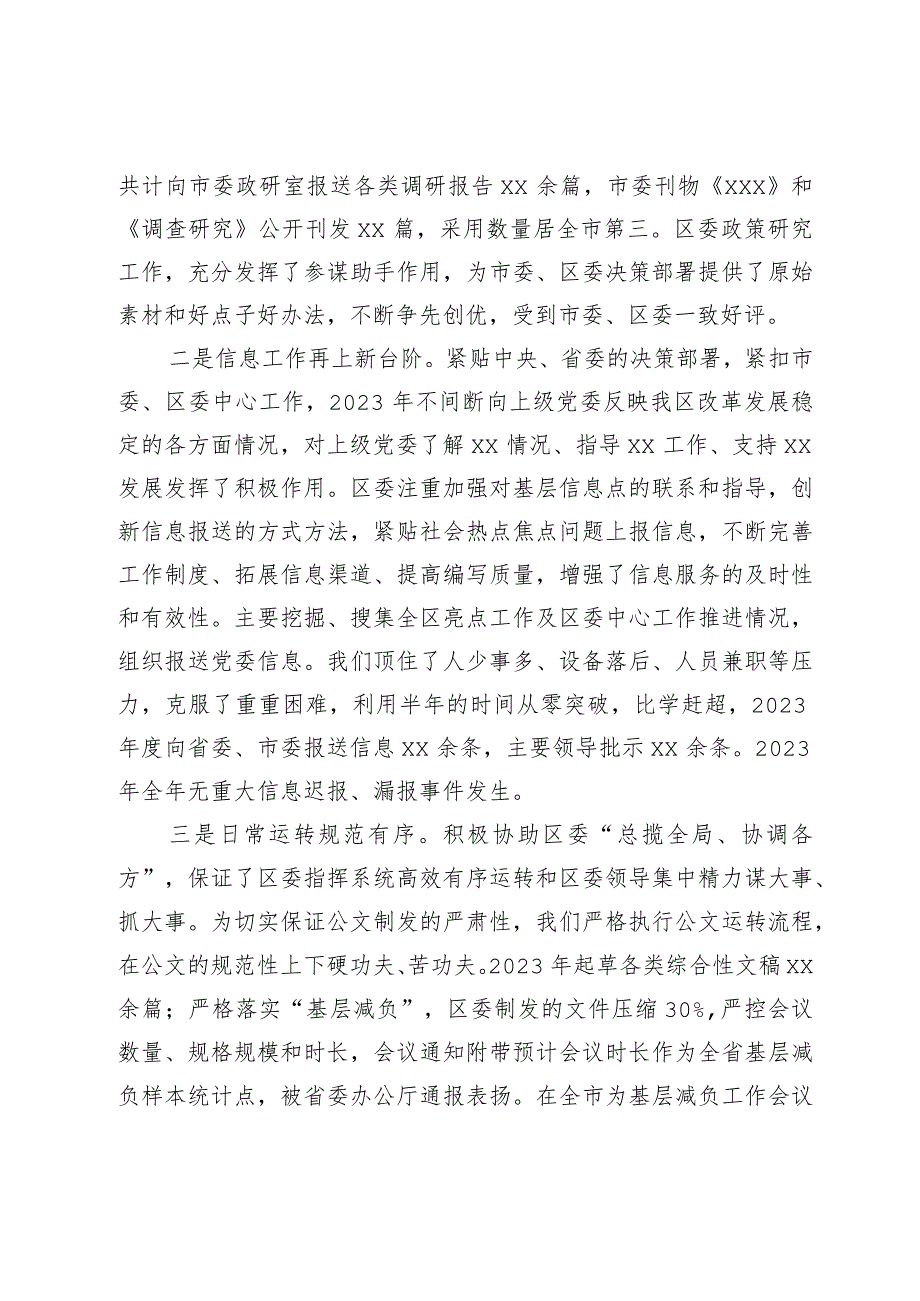 共计向市委政研室报送各类调研报告 XX 余篇，市委刊物《XXX》和
《调查研究》公开刊发 XX 篇，采用数量居全市第三。区委政策研究
工作，充分发挥了参谋助手作用，为市委、区委决策部署提供了原始
素材和好点子好办法，不断争先创优，受到市委、区委一致好评。
二是信息工作再上新台阶。紧贴中央、省委的决策部署，紧扣市
委、区委中心工作，2023 年不间断向上级党委反映我区改革发展稳
定的各方面情况，对上级党委了解 XX 情况、指导 XX 工作、支持 XX
发展发挥了积极作用。区委注重加强对基层信息点的联系和指导，创
新信息报送的方式方法，紧贴社会热点焦点问题上报信息，不断完善
工作制度、拓展信息渠道、提高编写质量，增强了信息服务的及时性
和有效性。主要挖掘、搜集全区亮点工作及区委中心工作推进情况，
组织报送党委信息。我们顶住了人少事多、设备落后、人员兼职等压
力，克服了重重困难，利用半年的时间从零突破，比学赶超，2023
年度向省委、市委报送信息 XX 余条，主要领导批示 XX 余条。2023
年全年无重大信息迟报、漏报事件发生。
三是日常运转规范有序。积极协助区委“总揽全局、协调各
方”，保证了区委指挥系统高效有序运转和区委领导集中精力谋大事、
抓大事。为切实保证公文制发的严肃性，我们严格执行公文运转流程，
在公文的规范性上下硬功夫、苦功夫。2023 年起草各类综合性文稿 XX
余篇；严格落实“基层减负”，区委制发的文件压缩 30%,严控会议
数量、规格规模和时长，会议通知附带预计会议时长作为全省基层减
负样本统计点，被省委办公厅通报表扬。在全市为基层减负工作会议